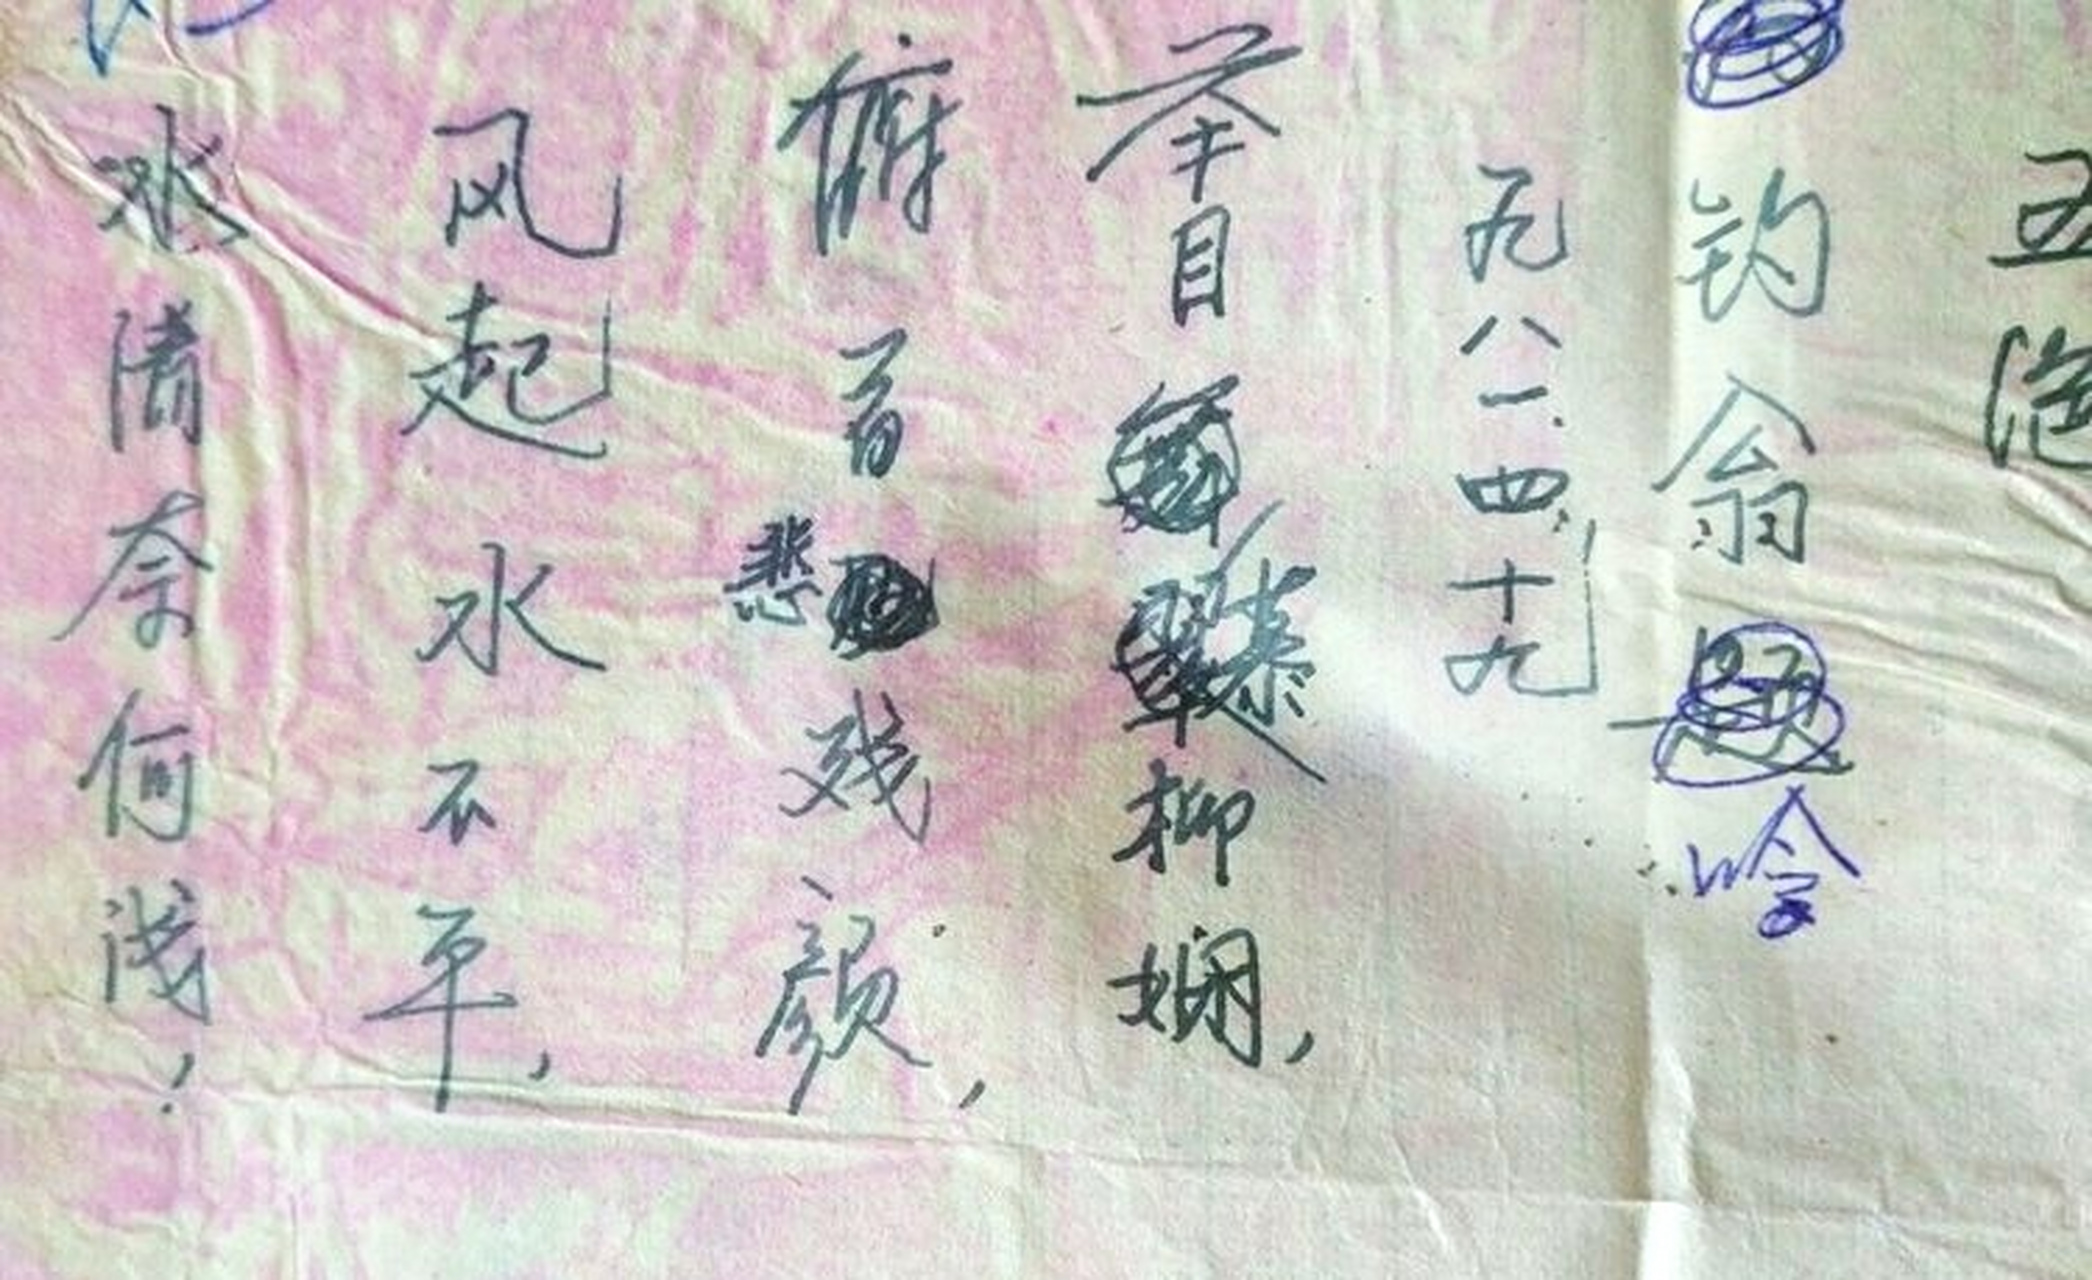 五
钓翁吟
九八一.四.十九
举目慕柳娴,
俯首悲残颜,
风起水不平,
水清奈何浅,